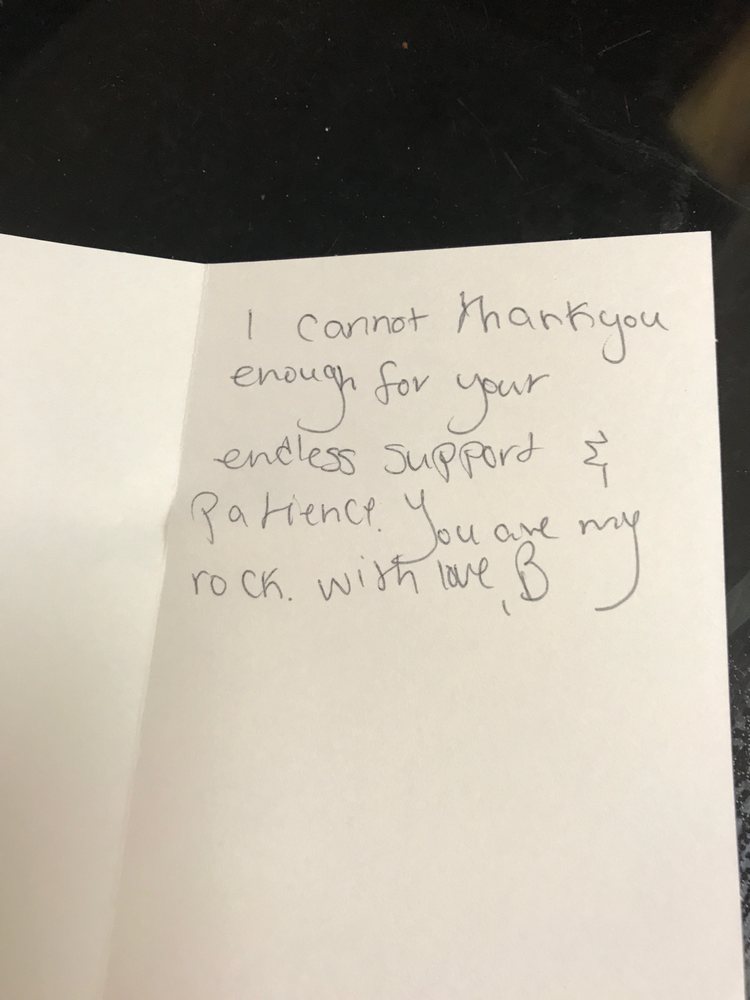 I cannot thankyou
enough for your
endless support &
Patience. You are my
rock. with love, B